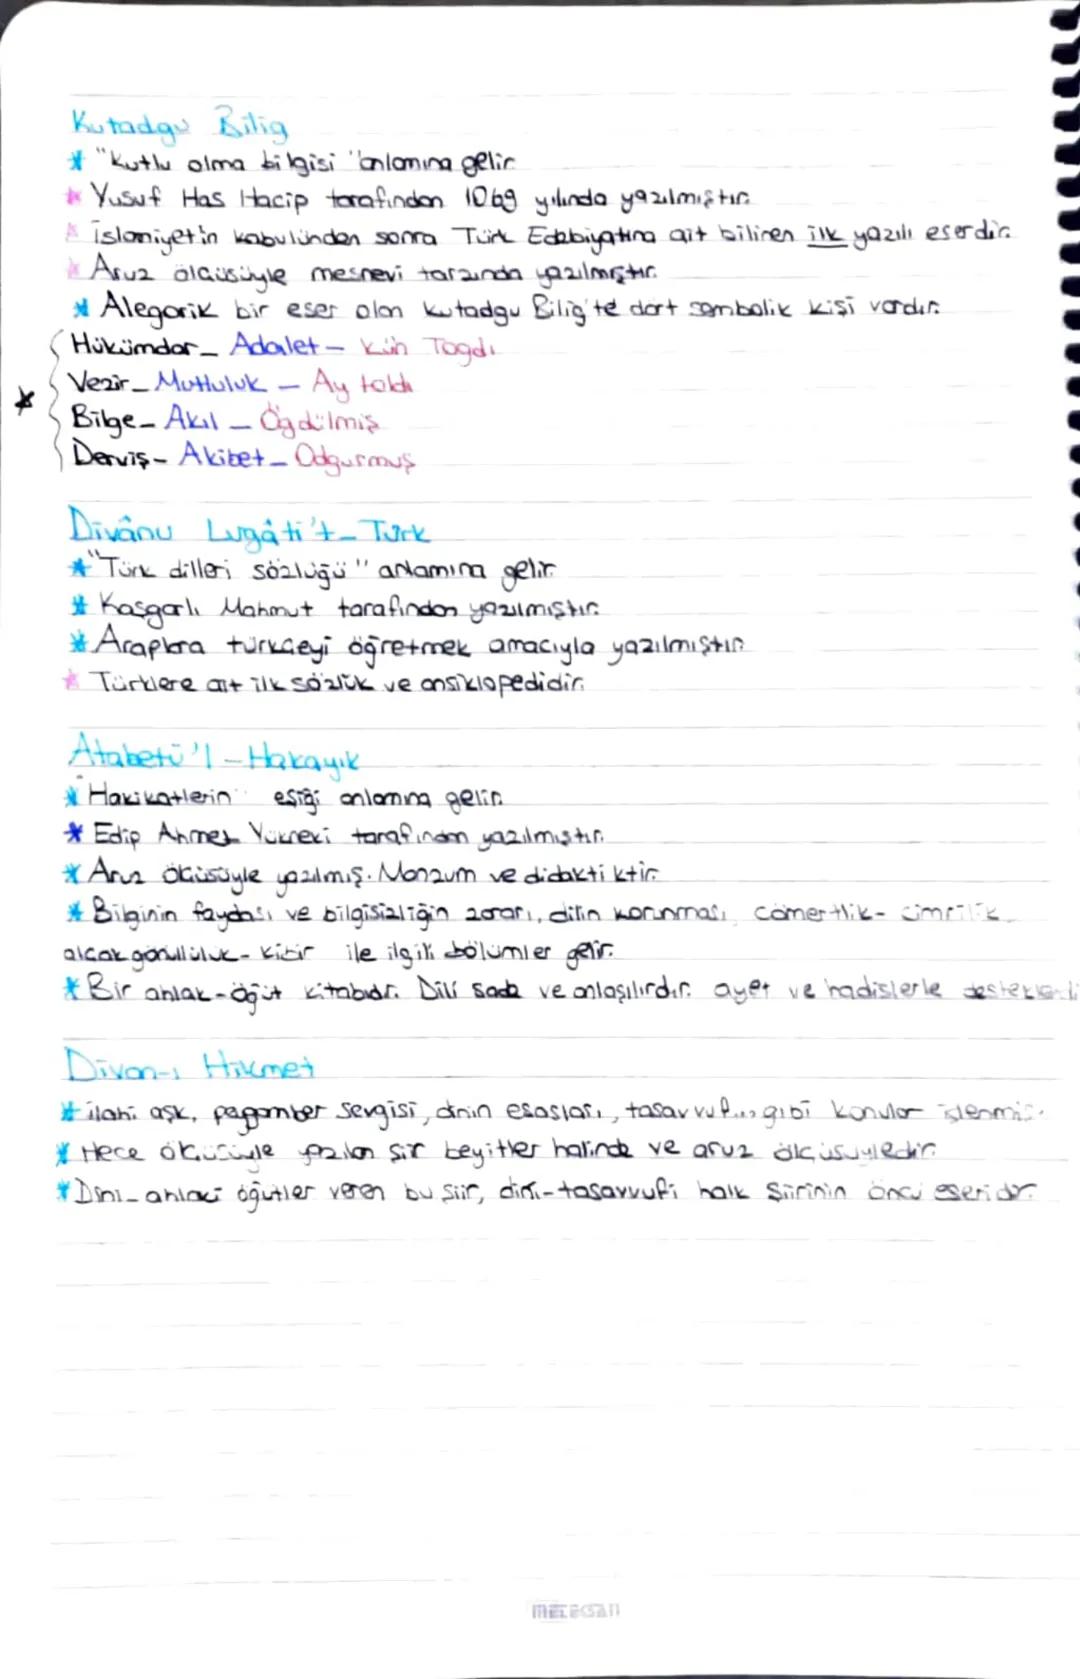 Kutadgu Bilig
* "Kutlu olma bilgisi" anlamına gelir.
* Yusuf Has Hacip tarafından 1069 yılında yazılmıştır.
* İslamiyet'in kabulünden sonra Türk Edebiyatına ait bilinen ilk yazılı eserdir.
* Aruz ölçüsüyle mesnevi tarzında yazılmıştır.
* Alegorik bir eser olan Kutadgu Bilig'te dört sembolik kişi vardır.
Hükümdar_ Adalet - Kün Togdı
* Vezir_ Mutluluk - Ay toldı
Bilge_ Akıl - Ögdülmiş
Derviş - Akibet - Odgurmuş
Divânu Lugâti't-Türk
* "Türk dilleri sözlüğü" anlamına gelir.
* Kaşgarlı Mahmut tarafından yazılmıştır.
* Araplara türkçeyi öğretmek amacıyla yazılmıştır.
* Türklere ait ilk sözlük ve ansiklopedidir.
Atabetü'l-Hakayık
* Hakikatlerin" eşiği anlamına gelir.
* Edip Ahmet Yükneki tarafından yazılmıştır.
* Aruz ölçüsüyle yazılmış. Manzum ve didaktiktir.
* Bilginin faydası ve bilgisizliğin zararı, dilin korunması, cömertlik- cimrilik
alçak gönüllülük- kibir ile ilgili bölümler gelir.
* Bir ahlak-öğüt kitabıdır. Dili sade ve anlaşılırdır. ayet ve hadislerle desteklendi
Divan-ı Hikmet
* ilahi aşk, paygamber sevgisi, dinin esasları, tasavvuf... gibi konular işlenmiş.
* Hece ölçüsüyle yazılan şiir beyitler halinde ve aruz ölçüsüyledir.
* Dini_ahlaki öğütler veren bu şiir, dini-tasavvufi halk şiirinin öncü eseridir.